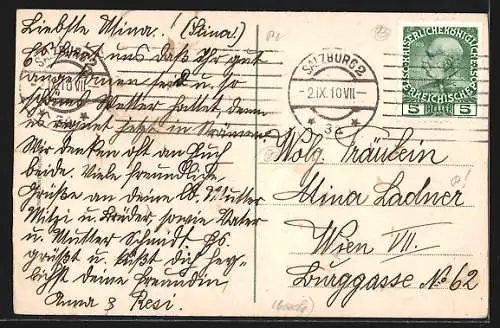 Liebste Mina! (Stina!)
Es freut uns dass Ihr gut
angekommen seid u. so
schönes Wetter hattet denn
es regnet jetzt in
Wir denken oft an Euch
beide. Viele freundliche
Grüße an deine lb. Mutter
Mitzi u. Brüder sowie Vater
u. Mutter Schmidt. Es
grüßt u. küßt dich herz-
lichst deine Freundin
Anna & Resi.
SALZBURG 2
10 VII
SALZBURG 2
-2.IX.10 VII-
* 3e *
KAISERLICHE KÖNIGLICHE
ÖSTERREICHISCHE POST
5 HELLER 5
Wolg. Fräulein
Mina Ladner
Wien VII.
Burggasse No 62